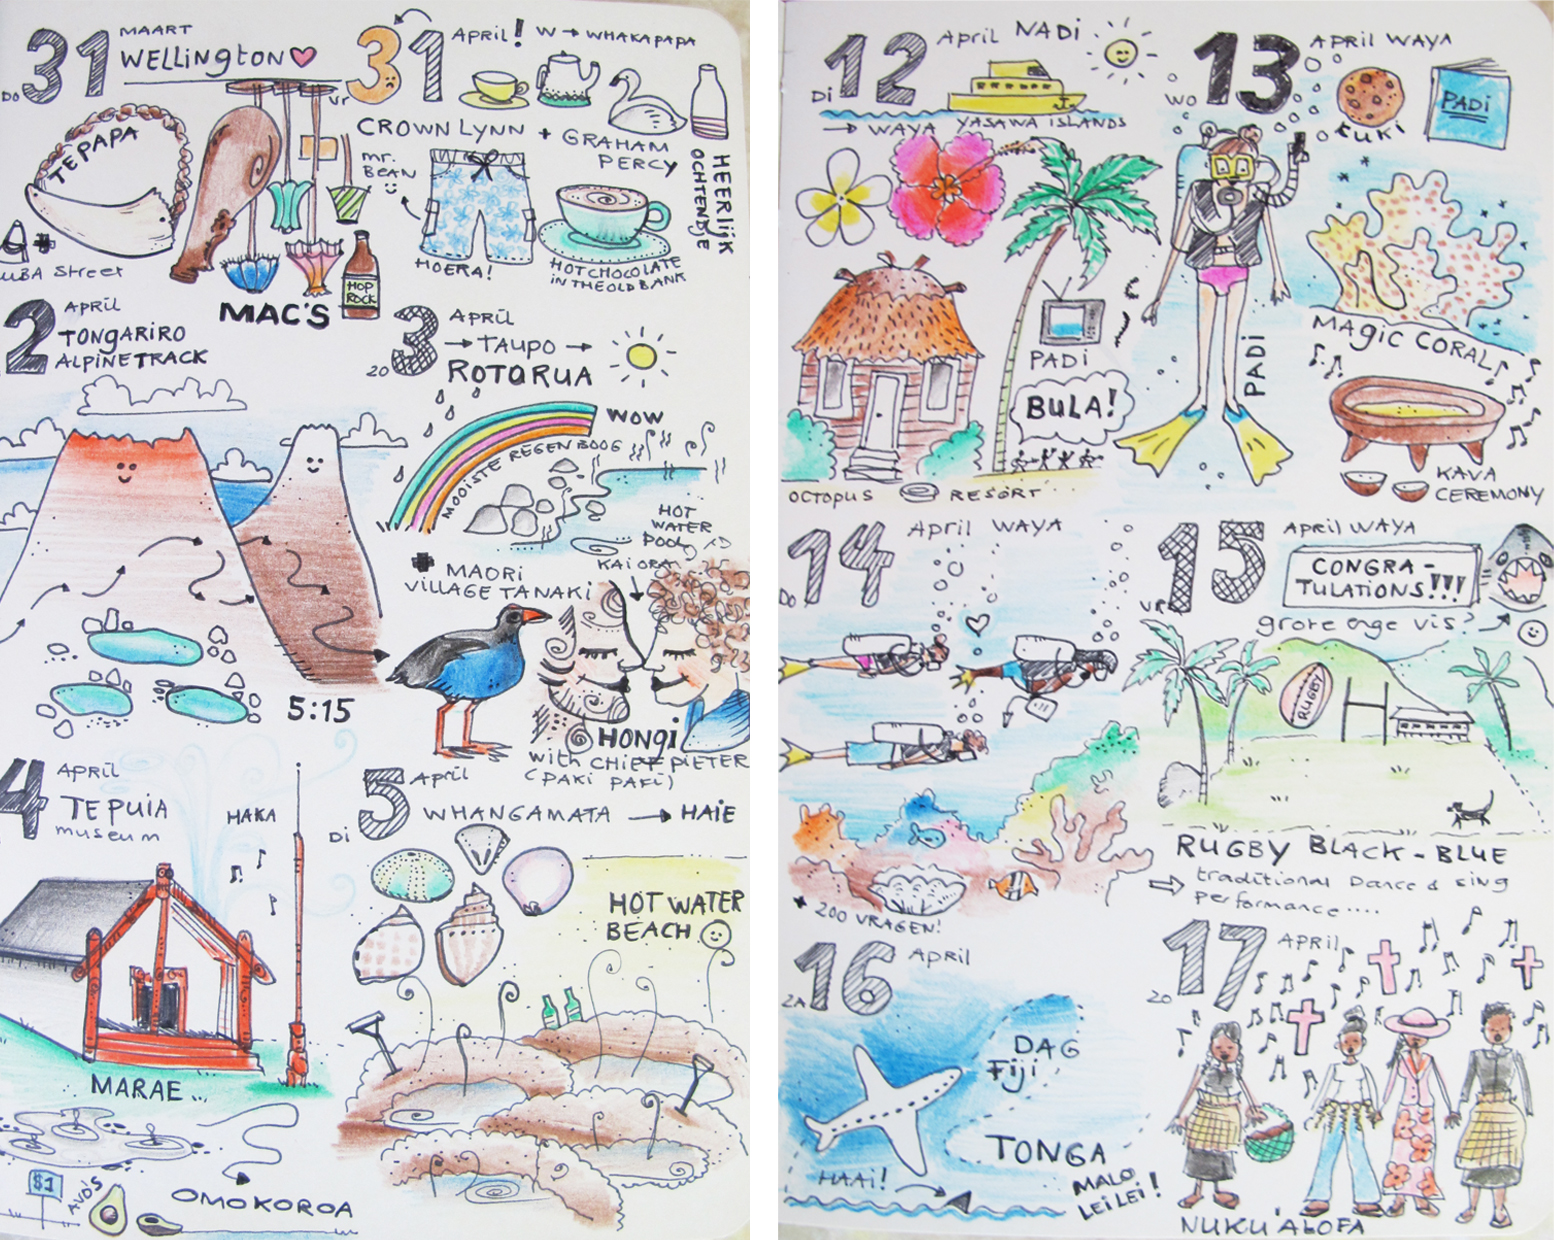 31 MAART
WELLINGTON
DO
TE PAPA
UBA Street
MAC'S
HOP
ROCK
31 April! W → WHAKAPAPA
Vr
CROWN LYNN + GRAHAM
PERCY
mr.
BEAN
HOERA!
HOT CHOCOLATE
IN THE OLD BANK
HEERLIJK
OCHTENDJE
2 April
TONGARIRO
ALPINE TRACK
5:15
3 April
→ TAUPO →
ZO
ROTORUA
WOW
MOOISTE REGENBOOG
HOT
WATER
POOL
MAORI
VILLAGE TANAKI
KAI ORA
HONGI
with CHIEF PIETER
(PAKI PAKI)
4 April
TE PUIA
museum
HAKA
MARAE ...
$1
AVO'S
OMOKOROA
5 April
Di
WHANGAMATA → HAIE
HOT WATER
BEACH
12 April NADI
Di
→ WAYA YASAWA ISLANDS
PADI
BULA!
OCTOPUS RESORT
13 April WAYA
WO
KUKI
PADI
PADI
MAGIC CORAL
KAVA
CEREMONY
14 April WAYA
DO
+ 200 VRAGEN!
15 April WAYA
VR
CONGRA-
TULATIONS!!!
grote enge vis?
RUGBY
RUGBY BLACK - BLUE
traditional Dance & sing
performance....
16 April
ZA
DAG
Fiji
TONGA
HAAi!
MALO
LEiLEi!
17 April
ZO
NUKU'ALOFA